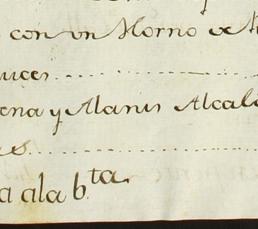 con vn Horno de
uces
ena y Alanis Alcal
s
a ala b.ta